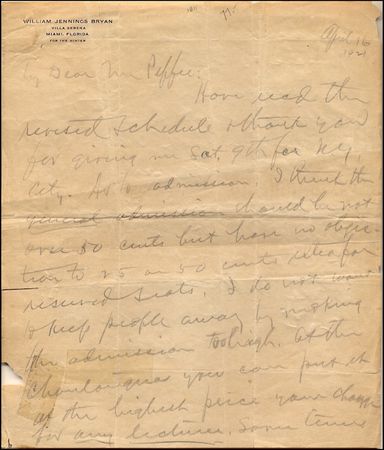 WILLIAM JENNINGS BRYAN
VILLA SERENA
MIAMI, FLORIDA
FOR THE WINTER
April 16
1921
My Dear Mr Peffer:
Have read the
revised schedule & thank you
for giving me Sat. 9th for N.Y.
City. As to admission. I think the
general admission should be not
over 50 cents but have no objec-
tion to 25 or 50 cents extra for
reserved seats. I do not want
to keep people away by making
the admission too high. At the
chautauqua you can put it
at the highest price you charge
for any lecturer. Some times